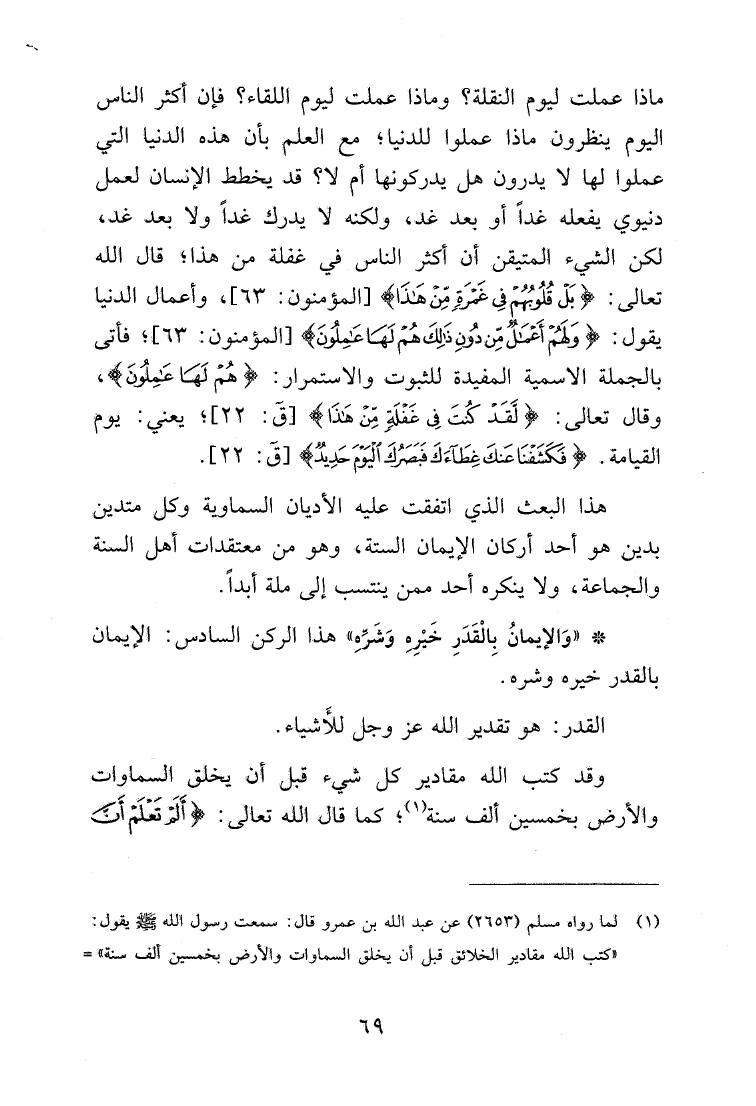 ماذا عملت ليوم النقلة؟ وماذا عملت ليوم اللقاء؟ فإن أكثر الناس
اليوم ينظرون ماذا عملوا للدنيا؛ مع العلم بأن هذه الدنيا التي
عملوا لها لا يدرون هل يدركونها أم لا؟ قد يخطط الإنسان لعمل
دنيوي يفعله غداً أو بعد غد، ولكنه لا يدرك غداً ولا بعد غد،
لكن الشيء المتيقن أن أكثر الناس في غفلة من هذا؛ قال الله
تعالى: ﴿بَلْ قُلُوبُهُمْ فِي غَمْرَةٍ مِّنْ هَٰذَا﴾ [المؤمنون: ٦٣]، وأعمال الدنيا
يقول: ﴿وَلَهُمْ أَعْمَٰلٌ مِّن دُونِ ذَٰلِكَ هُمْ لَهَا عَٰمِلُونَ﴾ [المؤمنون: ٦٣]؛ فأتى
بالجملة الاسمية المفيدة للثبوت والاستمرار: ﴿هُمْ لَهَا عَٰمِلُونَ﴾،
وقال تعالى: ﴿لَّقَدْ كُنتَ فِي غَفْلَةٍ مِّنْ هَٰذَا﴾ [قۤ: ٢٢]؛ يعني: يوم
القيامة. ﴿فَكَشَفْنَا عَنكَ غِطَآءَكَ فَبَصَرُكَ ٱلْيَوْمَ حَدِيدٌ﴾ [قۤ: ٢٢].
هذا البعث الذي اتفقت عليه الأديان السماوية وكل متدين
بدين هو أحد أركان الإيمان الستة، وهو من معتقدات أهل السنة
والجماعة، ولا ينكره أحد ممن ينتسب إلى ملة أبداً.
* «وَالإيمانُ بِالْقَدَرِ خَيْرِهِ وَشَرِّهِ» هذا الركن السادس: الإيمان
بالقدر خيره وشره.
القدر: هو تقدير الله عز وجل للأَشياء.
وقد كتب الله مقادير كل شيء قبل أن يخلق السماوات
والأرض بخمسين ألف سنة(١)؛ كما قال الله تعالى: ﴿أَلَمْ تَعْلَمْ أَنَّ
(١) لما رواه مسلم (٢٦٥٣) عن عبد الله بن عمرو قال: سمعت رسول الله ﷺ يقول:
«كتب الله مقادير الخلائق قبل أن يخلق السماوات والأرض بخمسين ألف سنة» =
٦٩